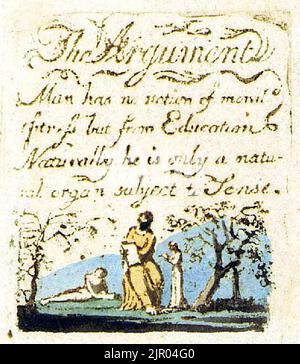 The Argument
Man has no notion of moral
fitness but from Education
Naturally he is only a natu-
ral organ subject to Sense.
alamy
Image ID: 2JR04G0
www.alamy.com